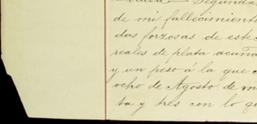 Segunda
de mi fallecimient
das forzosas de este
reales de plata acuña
y un peso á la que
ocho de Agosto de m
ta y tres con lo qu